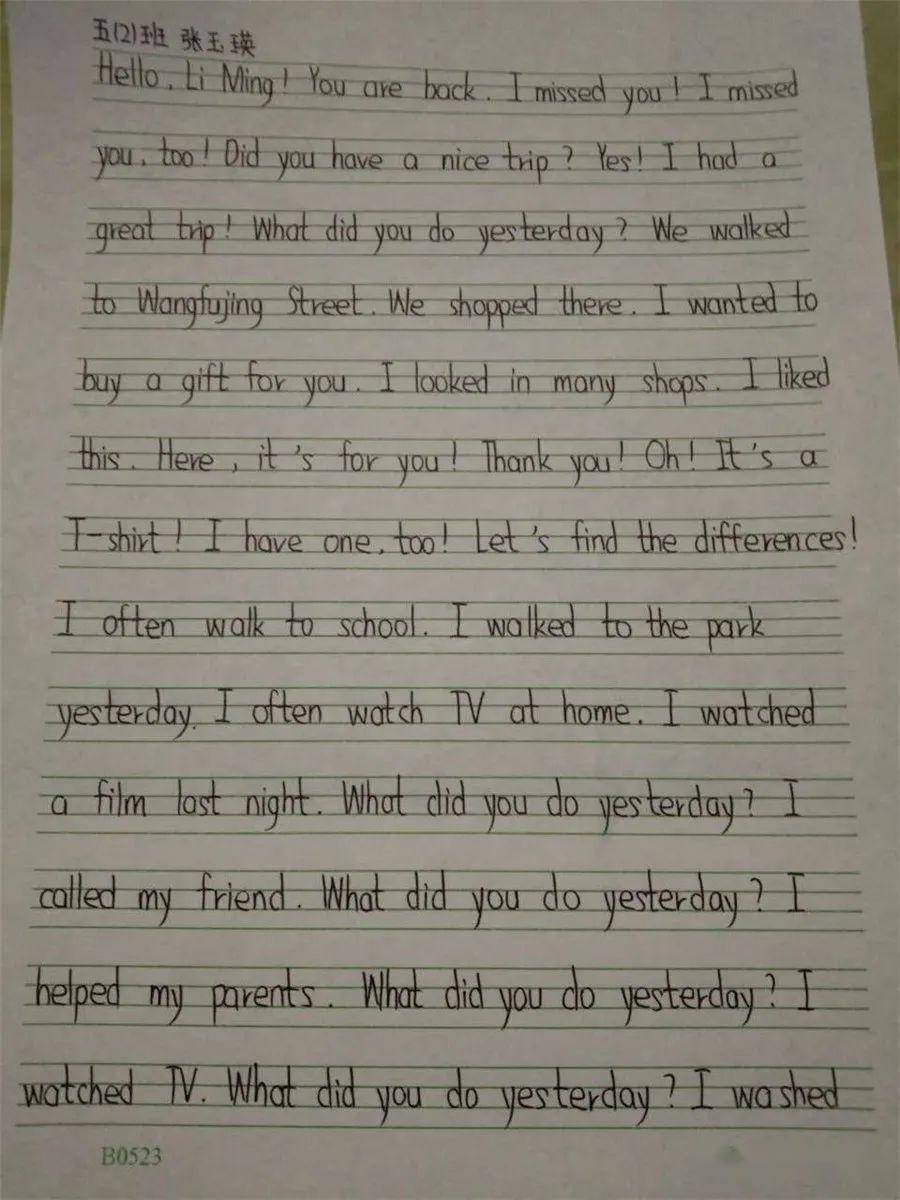 五(2)班 张玉瑛
Hello, Li Ming! You are back. I missed you! I missed
you, too! Did you have a nice trip? Yes! I had a
great trip! What did you do yesterday? We walked
to Wangfujing Street. We shopped there. I wanted to
buy a gift for you. I looked in many shops. I liked
this. Here, it's for you! Thank you! Oh! It's a
T-shirt! I have one, too! Let's find the differences!
I often walk to school. I walked to the park
yesterday. I often watch TV at home. I watched
a film last night. What did you do yesterday? I
called my friend. What did you do yesterday? I
helped my parents. What did you do yesterday? I
watched TV. What did you do yesterday? I washed
B0523